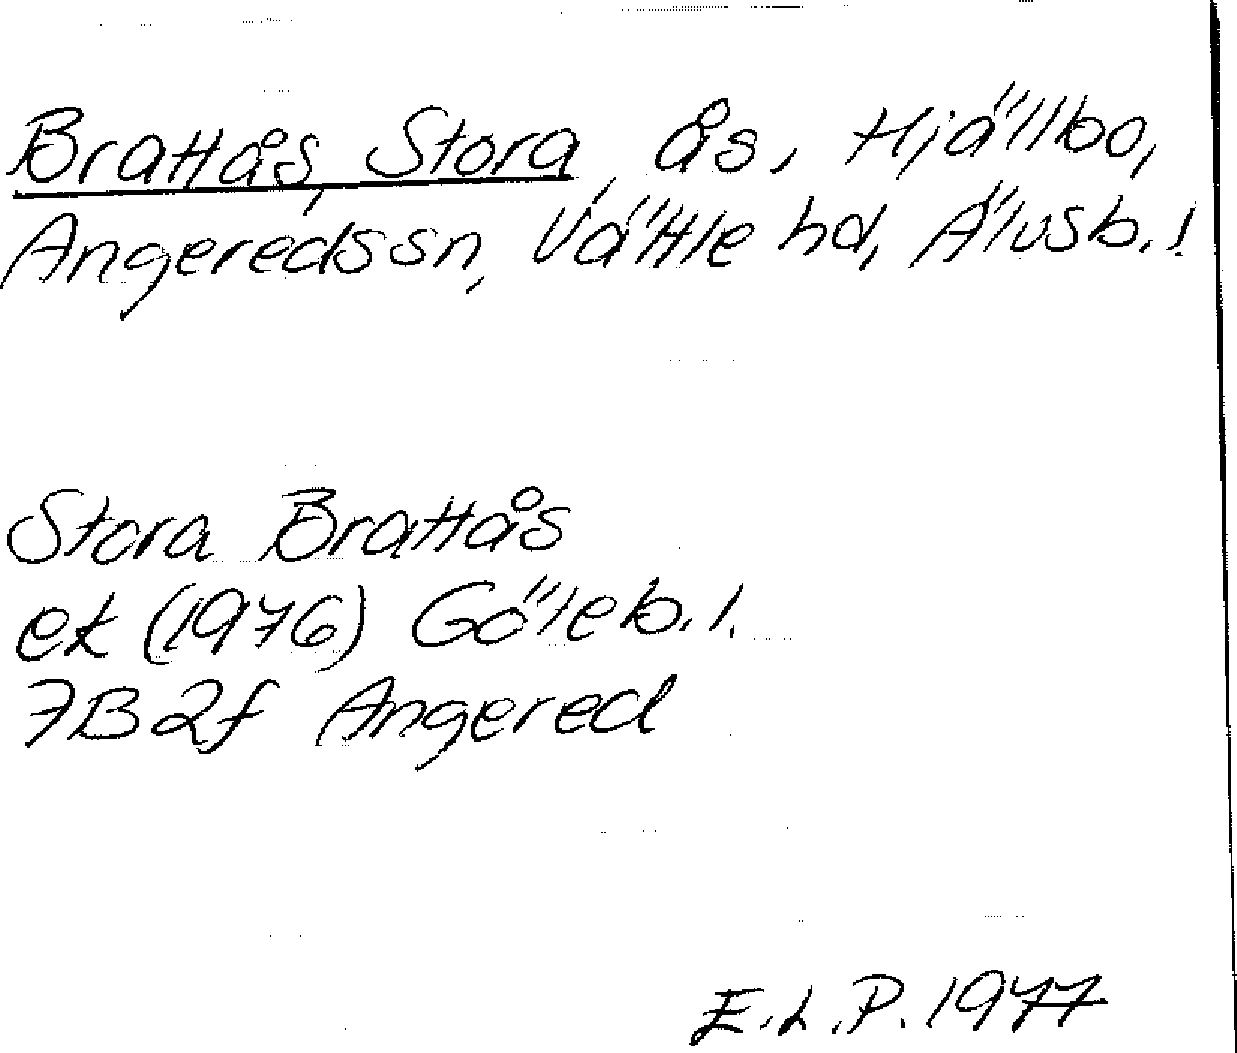 Brattås, Stora, ås, Hjällbo,
Angereds sn, Vättle hd, Älvsb. l
Stora Brattås
ek (1976) Göteb. l.
7B 2f Angered
E.L.P. 1977